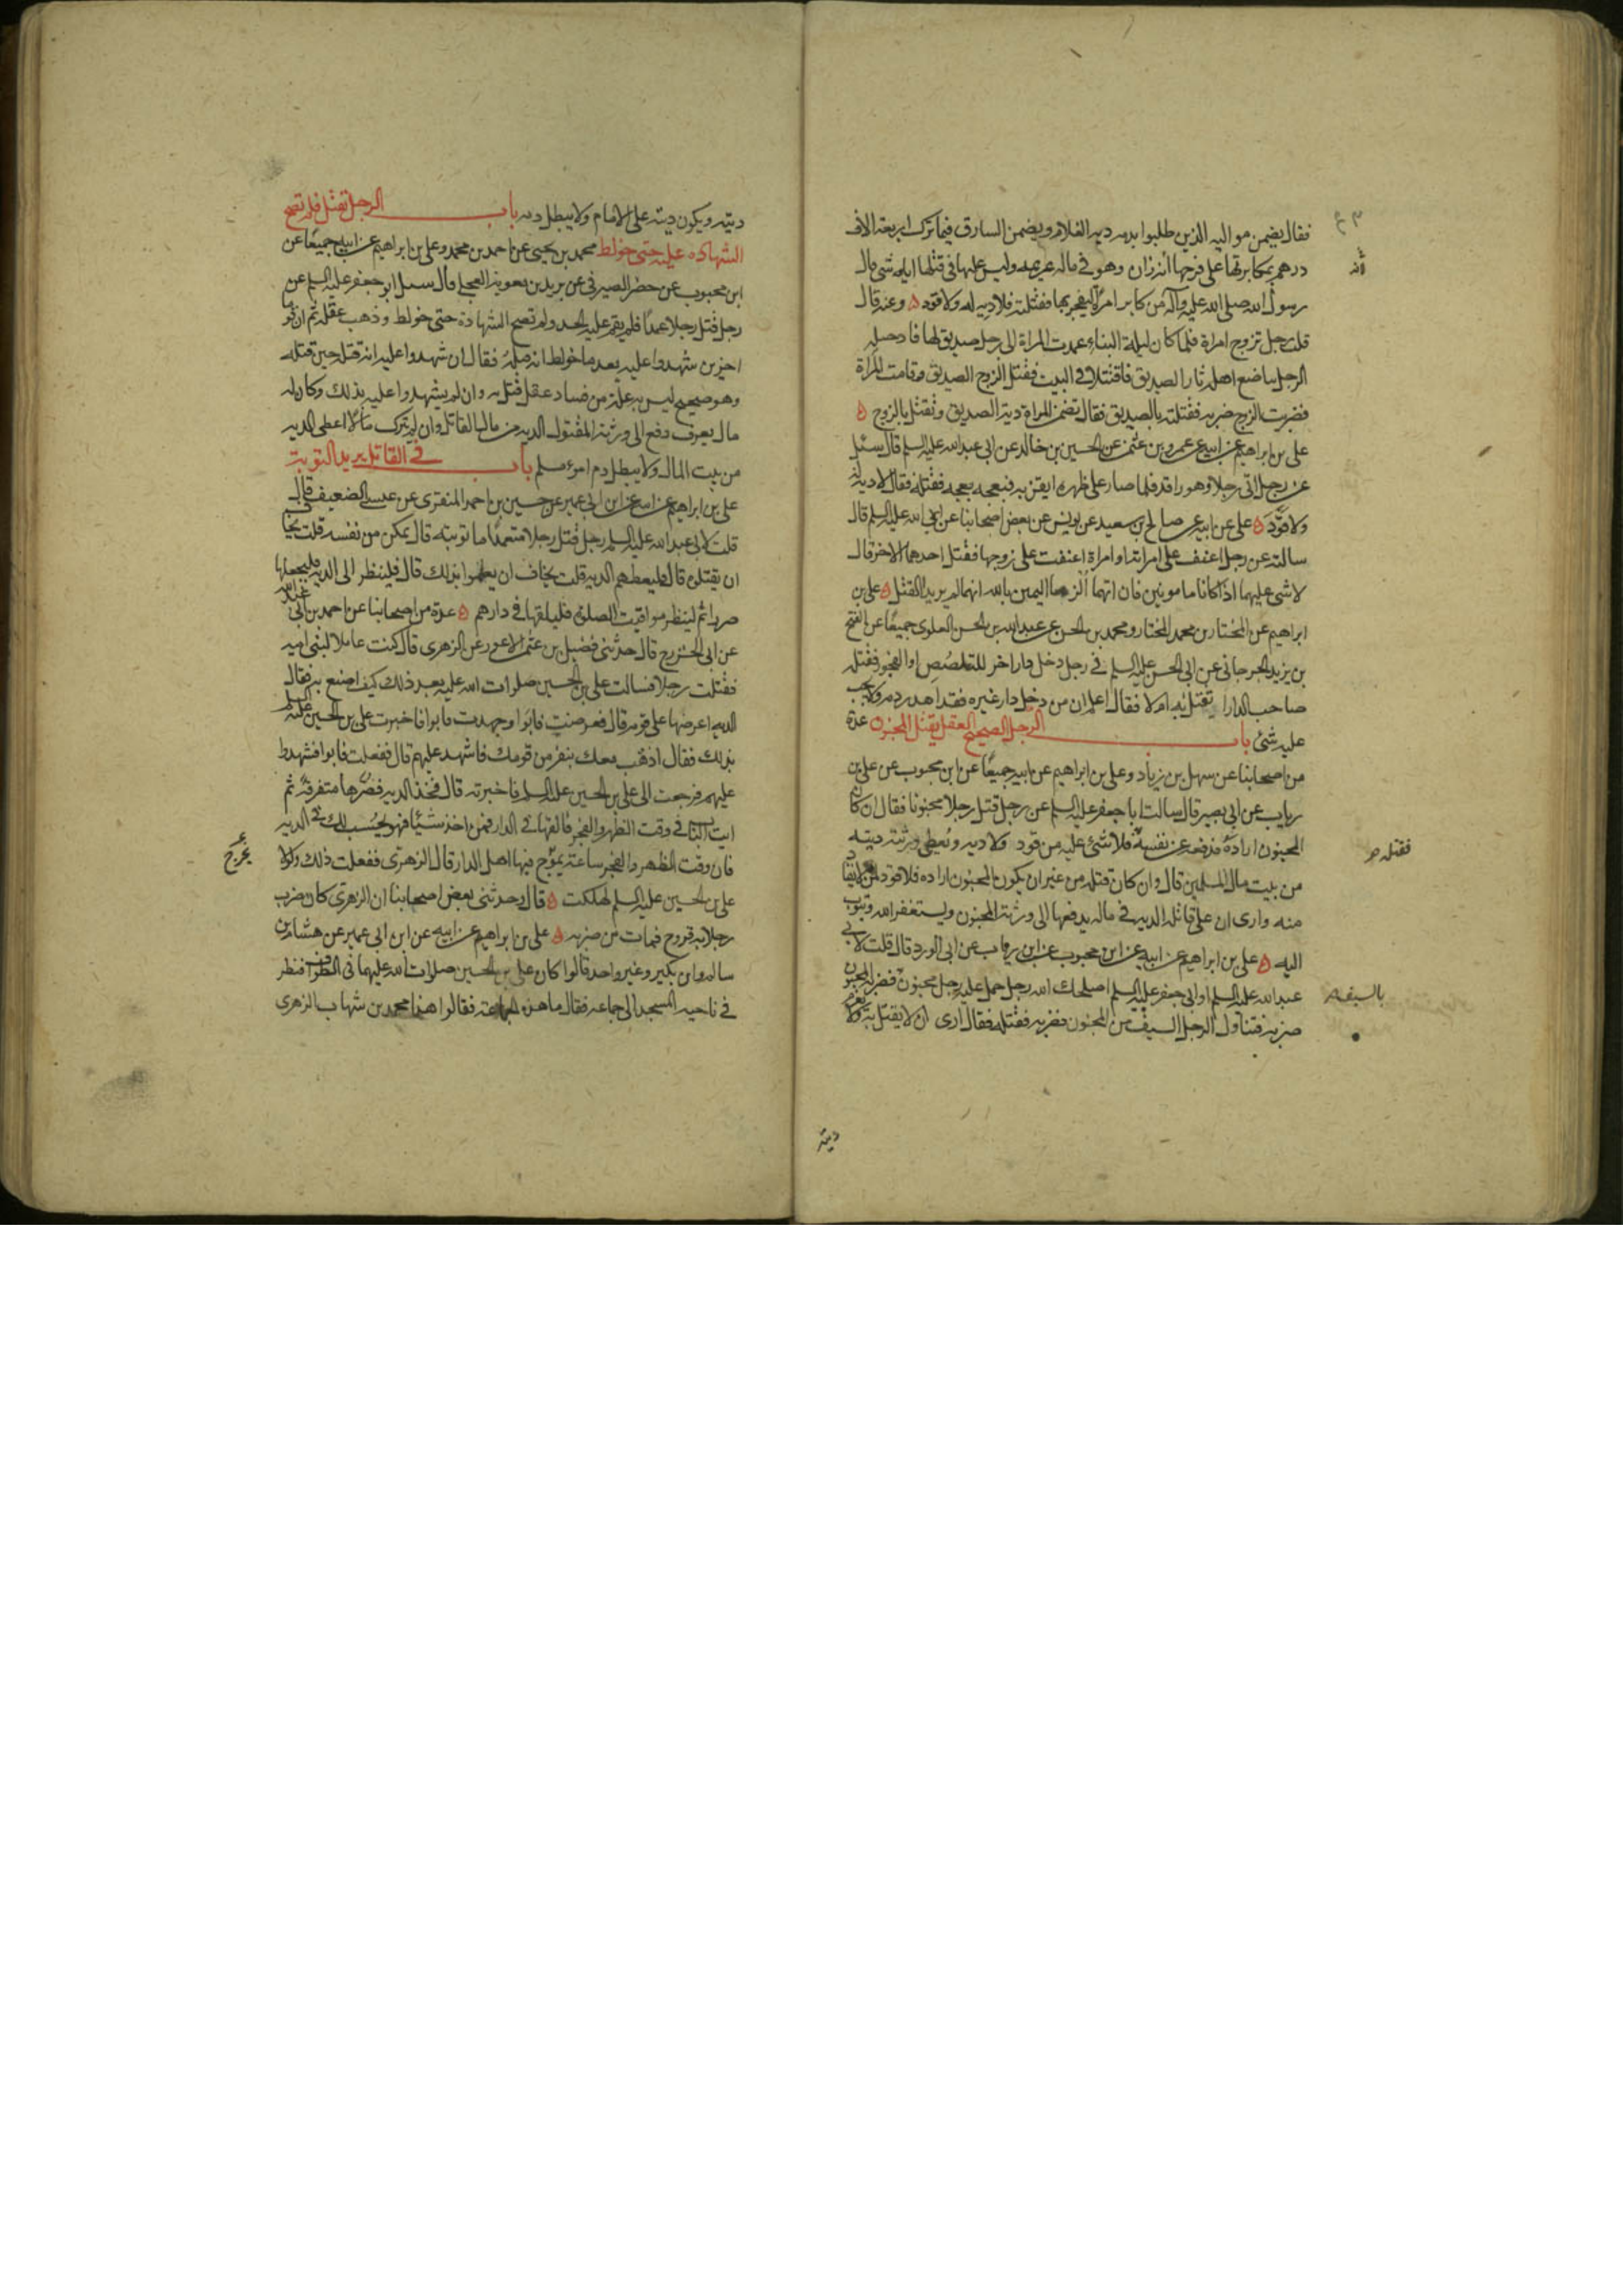 فقال يضمن مواليه الذين طلبوا بدمه دية الغلام ويضمن السارق فيما ترك اربعة الاف
درهم بمكابرتها على فرجها انه زان وهو فى ماله غريمه وليس عليها فى قتلها اياه شى قال
رسول الله صلى الله عليه وآله من كابر امراة ليفجر بها فقتلته فلا دية له ولا قود ه وعنه قال
قلت رجل تزوج امراة فلما كان ليلة البناء عمدت المراة الى رجل صديق لها فادخلته
الرجل يباضع اهله ثار الصديق فاقتتلا فى البيت فقتل الزوج الصديق وقامت المراة
فضربت الزوج ضربه فقتلته بالصديق فقال تضمن المراة دية الصديق وتقتل بالزوج ه
على بن ابراهيم عن ابيه عن عمرو بن عثمن عن الحسين بن خالد عن ابى عبد الله عليه السلم قال سئل
عن رجل اتى رجلا وهو راقد فلما صار على ظهره ايقن به فبعجه بعجه فقتله فقال لا دية له
ولا قود ه على عن ابيه عن صالح بن سعيد عن يونس عن بعض اصحابنا عن ابى عبد الله عليه السلم قال
سالته عن رجل اعنف على امراته او امراة اعنفت على زوجها فقتل احدهما الاخر قال
لا شى عليهما اذا كانا مامونين فان اتهما الزما اليمين بالله انهما لم يريدا القتل ه على بن
ابراهيم عن المختار بن محمد المختار ومحمد بن الحسن عن عبد الله بن الحسن العلوى جميعا عن الفتح
بن يزيد الجرجانى عن ابى الحسن عليه السلم فى رجل دخل دار اخر للتلصص او الفجور فقتله
صاحب الدار ا يقتل به ام لا فقال اعلم ان من دخل دار غيره فقد اهدر دمه ولا يجب
عليه شئ باب الرجل الصحيح العقل يقتل المجنون عدة
من اصحابنا عن سهل بن زياد وعلى بن ابراهيم عن ابيه جميعا عن ابن محبوب عن على بن
رياب عن ابى بصير قال سالت ابا جعفر عليه السلم عن رجل قتل رجلا مجنونا فقال ان كان
المجنون اراده فدفعه عن نفسه فلا شئ عليه من قود ولا دية ويعطى ورثته ديته
فقتله
من بيت مال المسلمين قال وان كان قتله من غير ان يكون المجنون اراده فلا قود لمن لا يقاد
منه وارى ان على قاتله الدية فى ماله يدفعها الى ورثة المجنون ويستغفر الله ويتوب
اليه ه على بن ابراهيم عن ابيه عن ابن محبوب عن ابن رياب عن ابى الورد قال قلت لابى
عبد الله عليه السلم او ابى جعفر عليه السلم اصلحك الله رجل حمل عليه رجل مجنون فضربه المجنون
ضربه فتناول الرجل السيف من المجنون فضربه فقتله فقال ارى ان لا يقتل به ولا يغرم
ديته
ديته ويكون ديته على الامام ولا يبطل دمه باب الرجل يقتل فلم تصح
الشهادة عليه حتى خولط محمد بن يحيى عن احمد بن محمد وعلى بن ابراهيم عن ابيه جميعا عن
ابن محبوب عن خضر الصيرفى عن بريد بن معوية العجلى قال سئل ابو جعفر عليه السلم عن
رجل قتل رجلا عمدا فلم يقم عليه الحد ولم تصح الشهادة حتى خولط وذهب عقله ثم ان قوما
اخرين شهدوا عليه بعد ما خولط انه قتله فقال ان شهدوا عليه انه قتله حين قتله
وهو صحيح ليس به علة من فساد عقل قتل به وان لم يشهدوا عليه بذلك وكان له
مال يعرف دفع الى ورثة المقتول الدية من مال القاتل وان لم يترك مالا اعطى الدية
من بيت المال ولا يبطل دم امرء مسلم باب فى القاتل يريد التوبة
على بن ابراهيم عن ابيه عن ابن ابى عمير عن حسين بن احمد المنقرى عن عيسى الضعيف قال
قلت لابى عبد الله عليه السلم رجل قتل رجلا متعمدا ما توبته قال يمكن من نفسه قلت يخاف
ان يقتلوه قال فليعطهم الدية قلت يخاف ان يعلموا بذلك قال فلينظر الى الدية فليجعلها
صررا ثم لينظر مواقيت الصلوة فليلقها فى دارهم ه عدة من اصحابنا عن احمد بن ابى عبد الله
عن ابى الخزرج قال حدثنى فضيل بن عثمن الاعور عن الزهرى قال كنت عاملا لبنى امية
فقتلت رجلا فسالت على بن الحسين صلوات الله عليه بعد ذلك كيف اصنع به فقال
الدية اعرضها على قومه قال فعرضت فابوا وجهدت فابوا فاخبرت على بن الحسين عليه السلم
بذلك فقال اذهب معك بنفر من قومك فاشهد عليهم قال ففعلت فابوا فشهدوا
عليهم فرجعت الى على بن الحسين عليه السلم فاخبرته قال فخذ الدية فصررها متفرقة ثم
ايت الباب فى وقت الظهر والفجر فالقها فى الدار فمن اخذ شيئا فهو يحسب لك فى الدية
فان وقت الظهر والفجر ساعة يموج فيها اهل الدار قال الزهرى ففعلت ذلك ولولا
يخرج
على بن الحسين عليه السلم لهلكت ه قال وحدثنى بعض اصحابنا ان الزهرى كان ضرب
رجلا به قروح فمات من ضربه ه على بن ابراهيم عن ابيه عن ابن ابى عمير عن هشام بن
سالم وابن بكير وغير واحد قالوا كان على بن الحسين صلوات الله عليهما فى الطواف فنظر
فى ناحية المسجد الى جماعة فقال ما هذه الجماعة فقالوا هذا محمد بن شهاب الزهرى